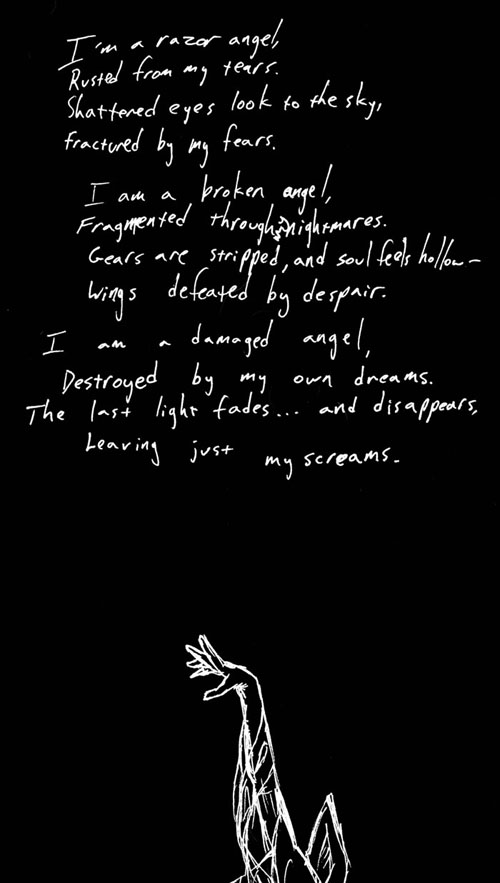 I'm a razor angel,
Rusted from my tears.
Shattered eyes look to the sky,
fractured by my fears.
I am a broken angel,
Fragmented through nightmares.
Gears are stripped, and soul feels hollow-
Wings defeated by despair.
I am a damaged angel,
Destroyed by my own dreams.
The last light fades... and disappears,
Leaving just my screams.